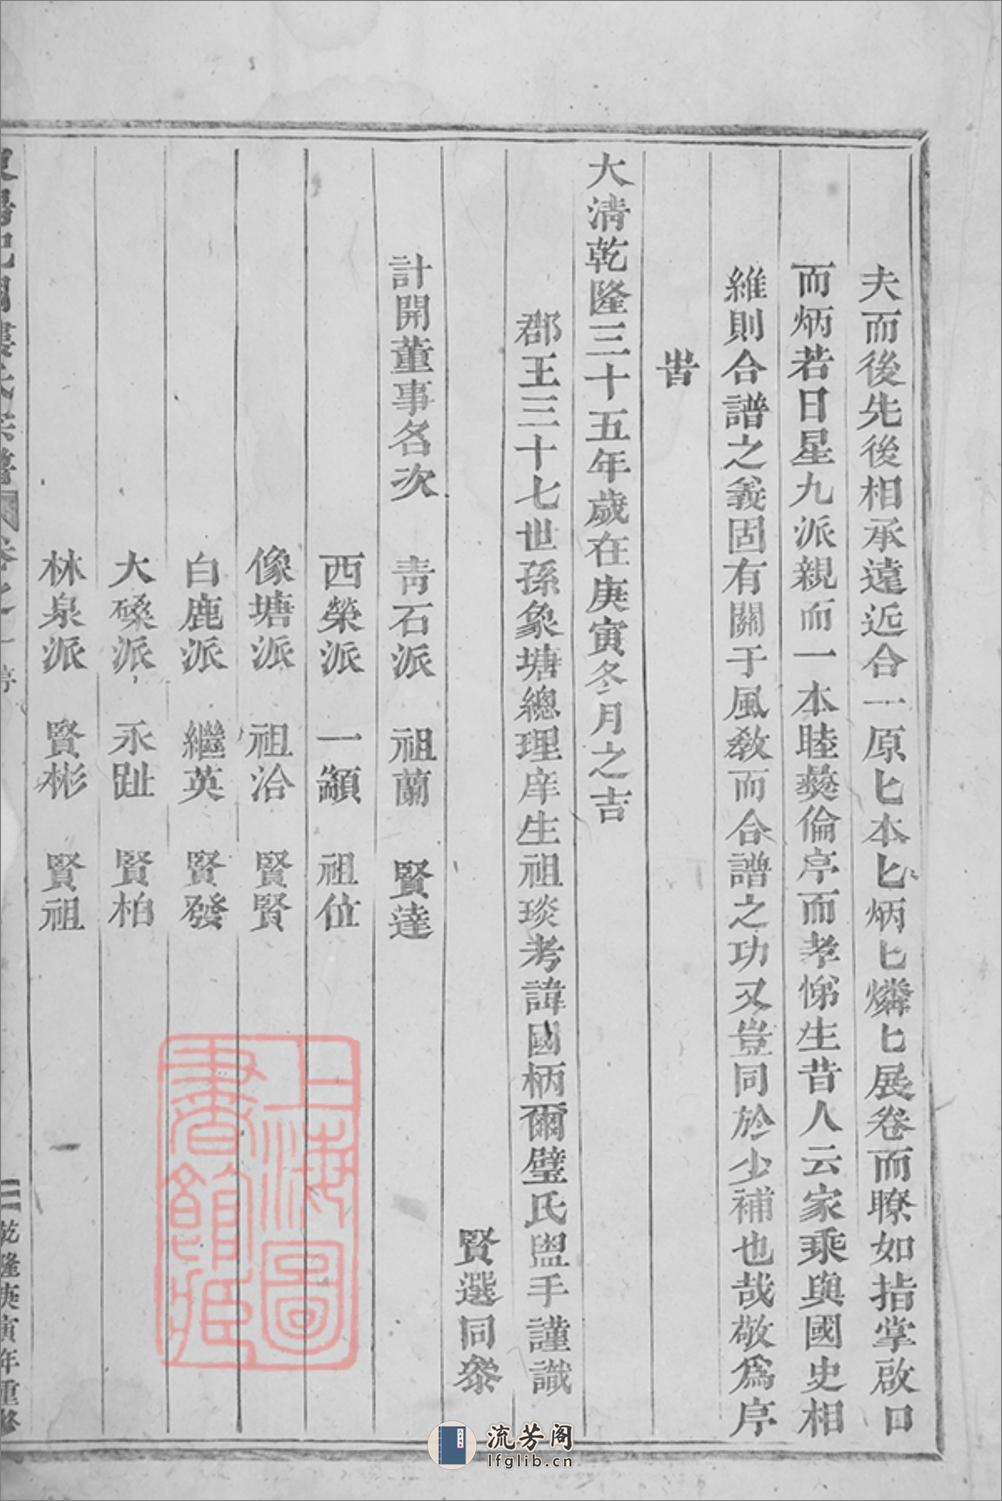 夫而後先後相承遠近合一原匕本匕炳匕燐匕展卷而瞭如指掌啟口
而炳若日星九派親而一本睦彝倫序而孝悌生昔人云家乘與國史相
維則合譜之義固有關于風教而合譜之功又豈同於少補也哉敬爲序
旹
大清乾隆三十五年歲在庚寅冬月之吉
郡王三十七世孫象塘總理庠生祖琰考諱國柄爾璧氏盥手謹識
賢選同叅
計開董事名次 青石派 祖蘭 賢達
西榮派 一顓 祖位
像塘派 祖治 賢賢
白鹿派 繼英 賢發
大磉派 永趾 賢柏
林泉派 賢彬 賢祖
氏宗譜 卷之一 序 乾隆庚寅年重修
上海圖書館藏
流芳阁
lfglib.cn